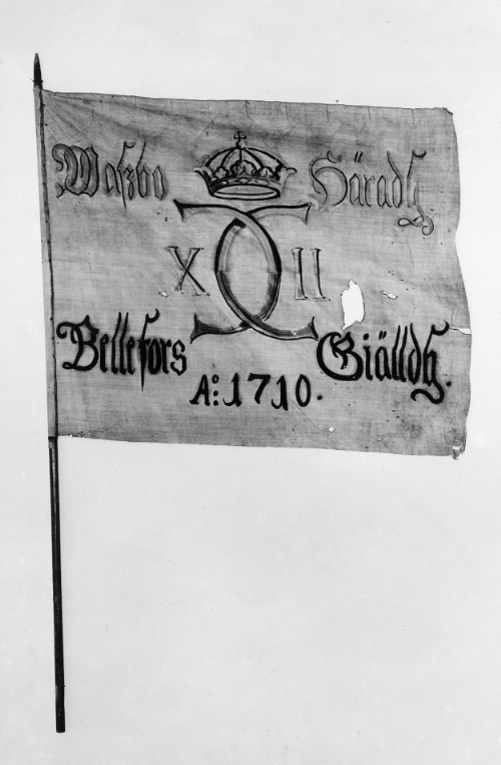 Waßbo Häradh
X II
Bellefors Giälldh.
Ao: 1710.